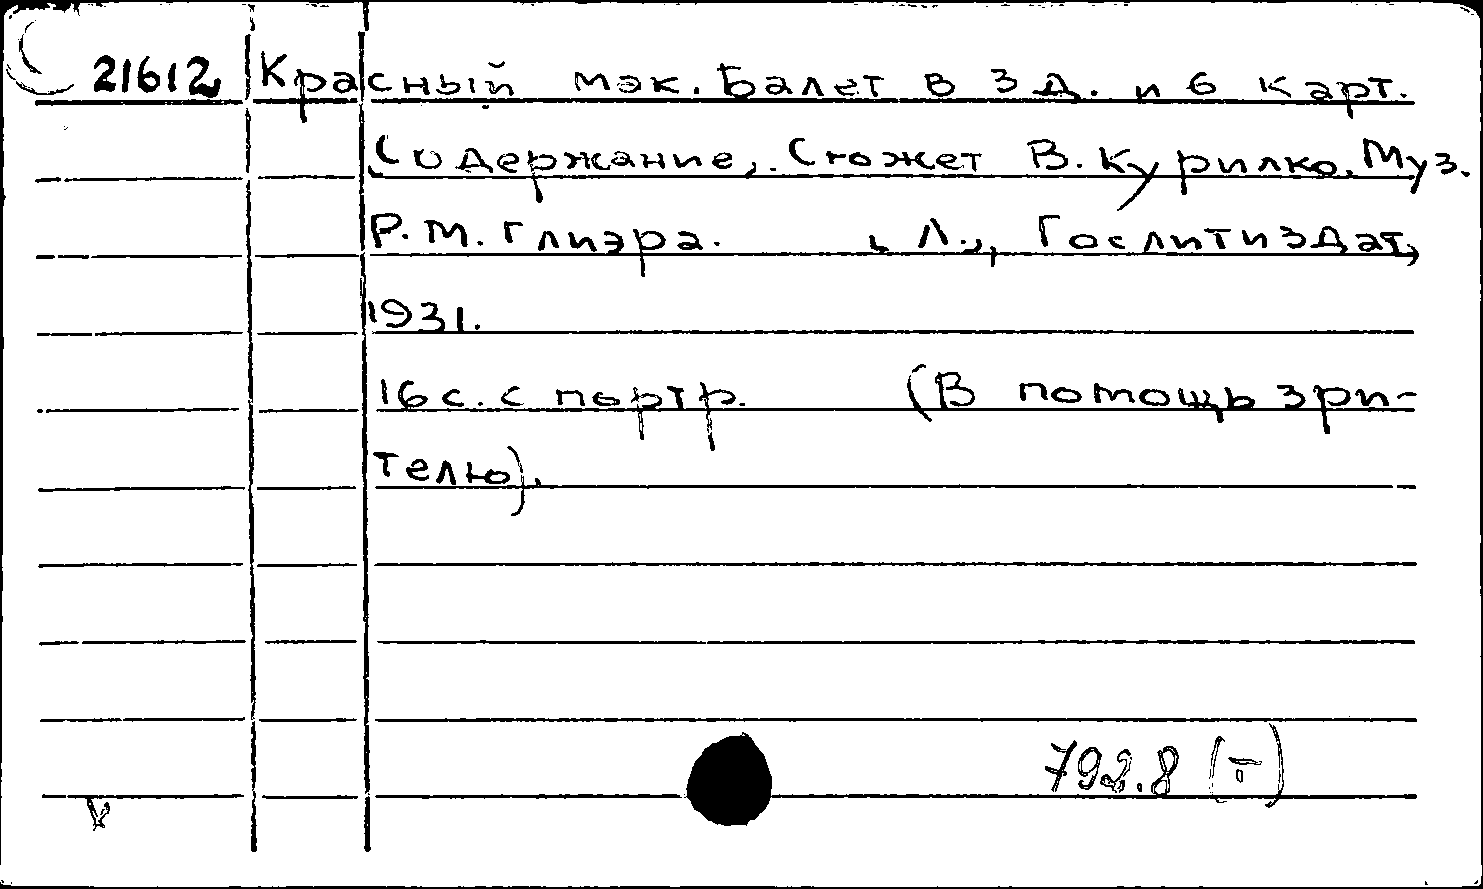 21612 Красный мак. Балет в 3 д. и 6 карт.
Содержание, Сюжет В. Курилко. Муз.
Р. М. Глиэра. , Л., Гослитиздат,
1931.
16 с. с портр. (В помощь зри-
телю).
792.8